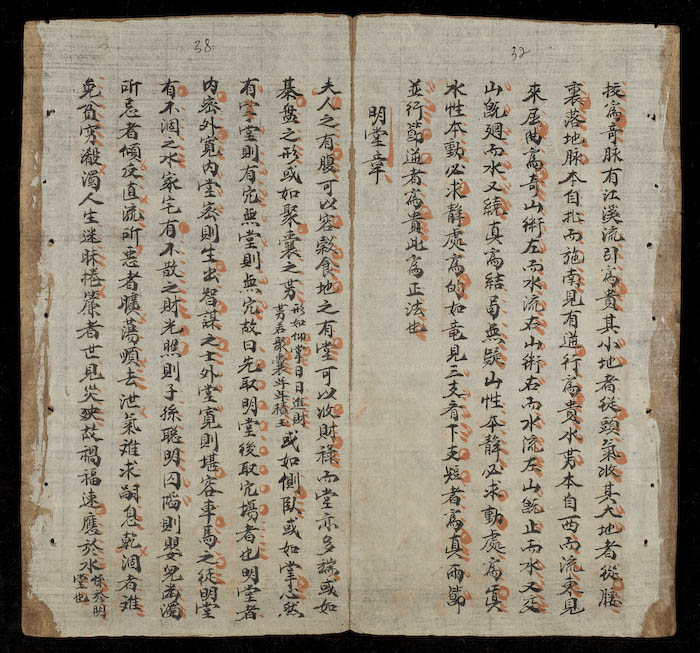 32
按為奇脉有江溪流引為貴其小地者從頭氣收其大地者從腰
裏落地脉本自北而施南見有逆行為貴水势本自西而流東見
來屈曲為奇山術左而水流右山術右而水流左山既止而水又交
山既廻而水又繞真為結局無疑山性本静必求動處為真
水性本動必求静處為的如竜見三支看下支短者為真雨節
並行節逆者為貴此為正法也
明堂章
38
夫人之有腹可以容穀食地之有堂可以收財祿而堂亦多端或如
棊盤之形或如聚囊之势形如仰掌日日進財势若聚囊年年積玉或如側臥或如掌心然
有堂堂則有穴無堂則無穴故曰先取明堂後取穴塲者也明堂者
内密外寬内堂密則生出智謀之士外堂寬則堪容車馬之徒明堂
有不涸之水家宅有不散之財光照則子孫聰明囚陷則嬰兒
所忌者傾反直流所悪者曠蕩順去泄氣难求嗣息乾涸者难
免貧穷殺濁人生迷昧捲簾者世見災殃故禍福速應於水係於明堂也